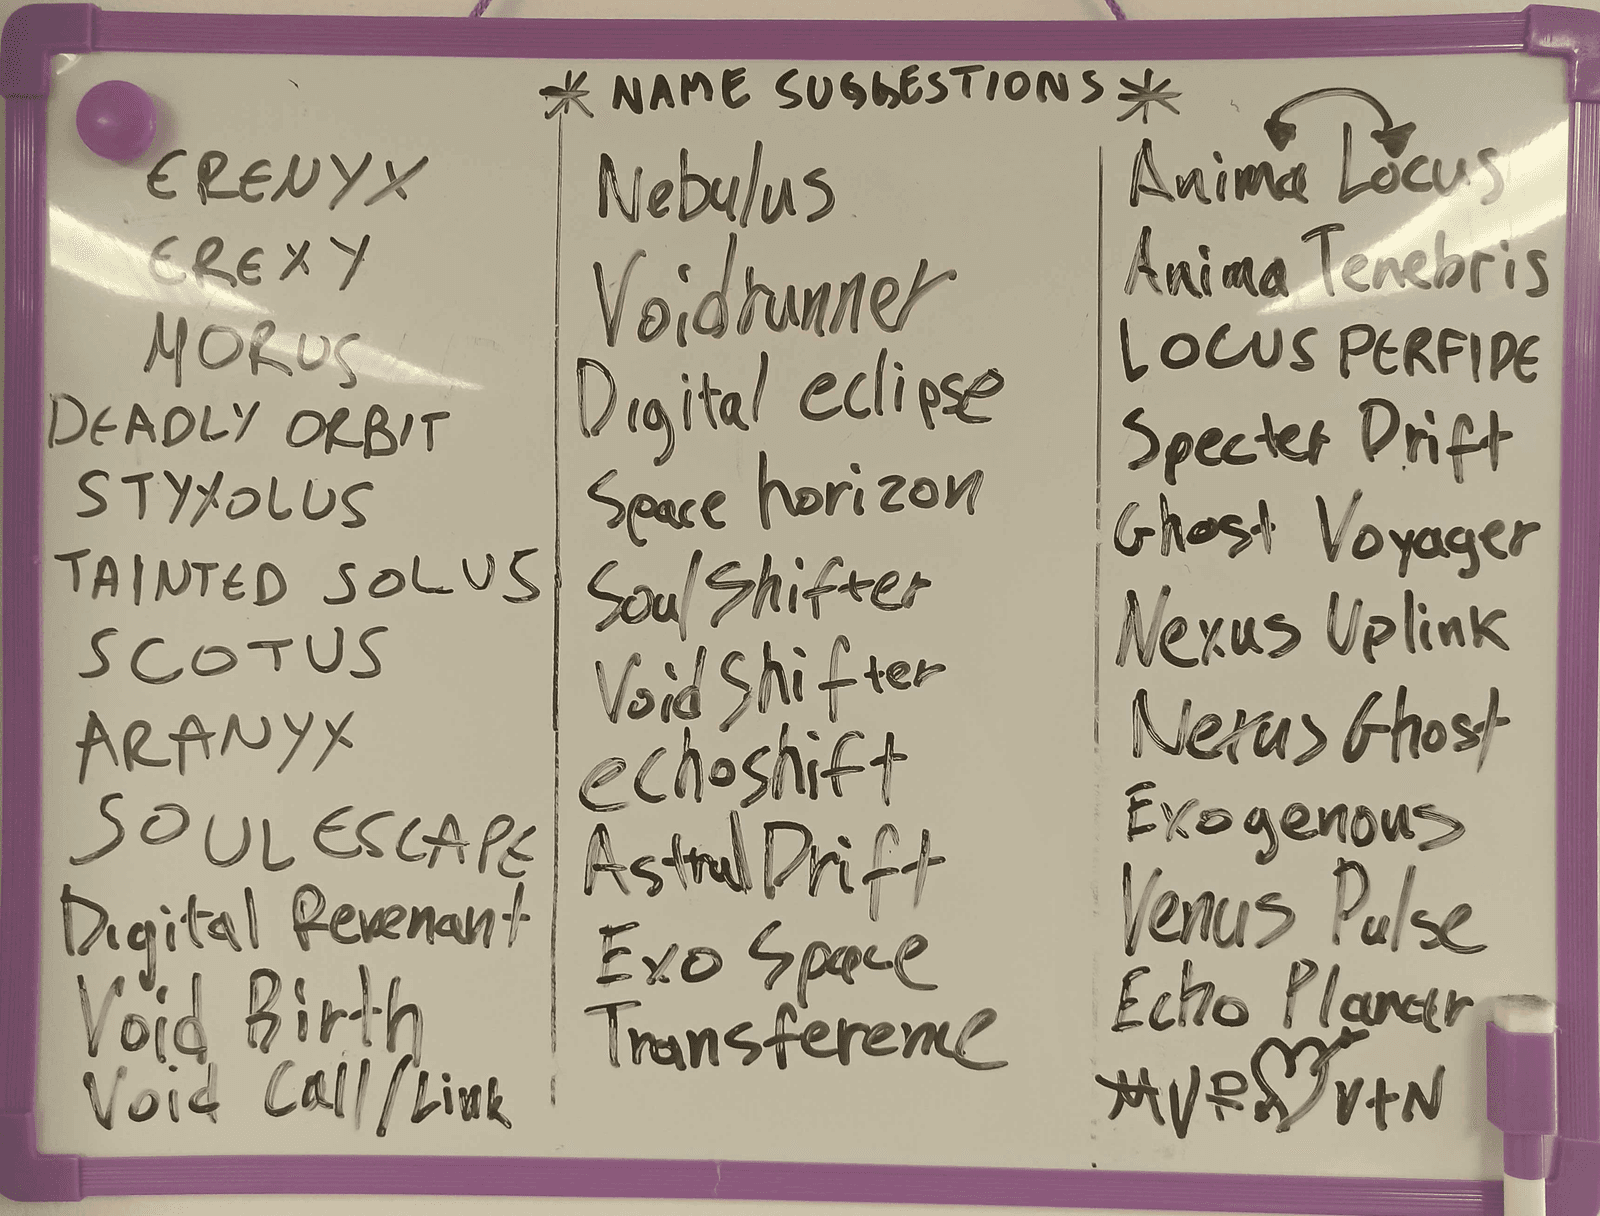 * NAME SUGGESTIONS *
ERENYX
EREXY
MORUS
DEADLY ORBIT
STYXOLUS
TAINTED SOLUS
SCOTUS
ARANYX
SOUL ESCAPE
Digital Revenant
Void Birth
Void Call/Link
Nebulus
Voidrunner
Digital eclipse
Space horizon
Soul Shifter
Void Shifter
echoshift
Astral Drift
Exo Space
Transference
Anima Locus
Anima Tenebris
LOCUS PERFIDE
Specter Drift
Ghost Voyager
Nexus Uplink
Nexus Ghost
Exogenous
Venus Pulse
Echo
V+N